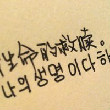 生命的救贖。
나의 생명이다 하